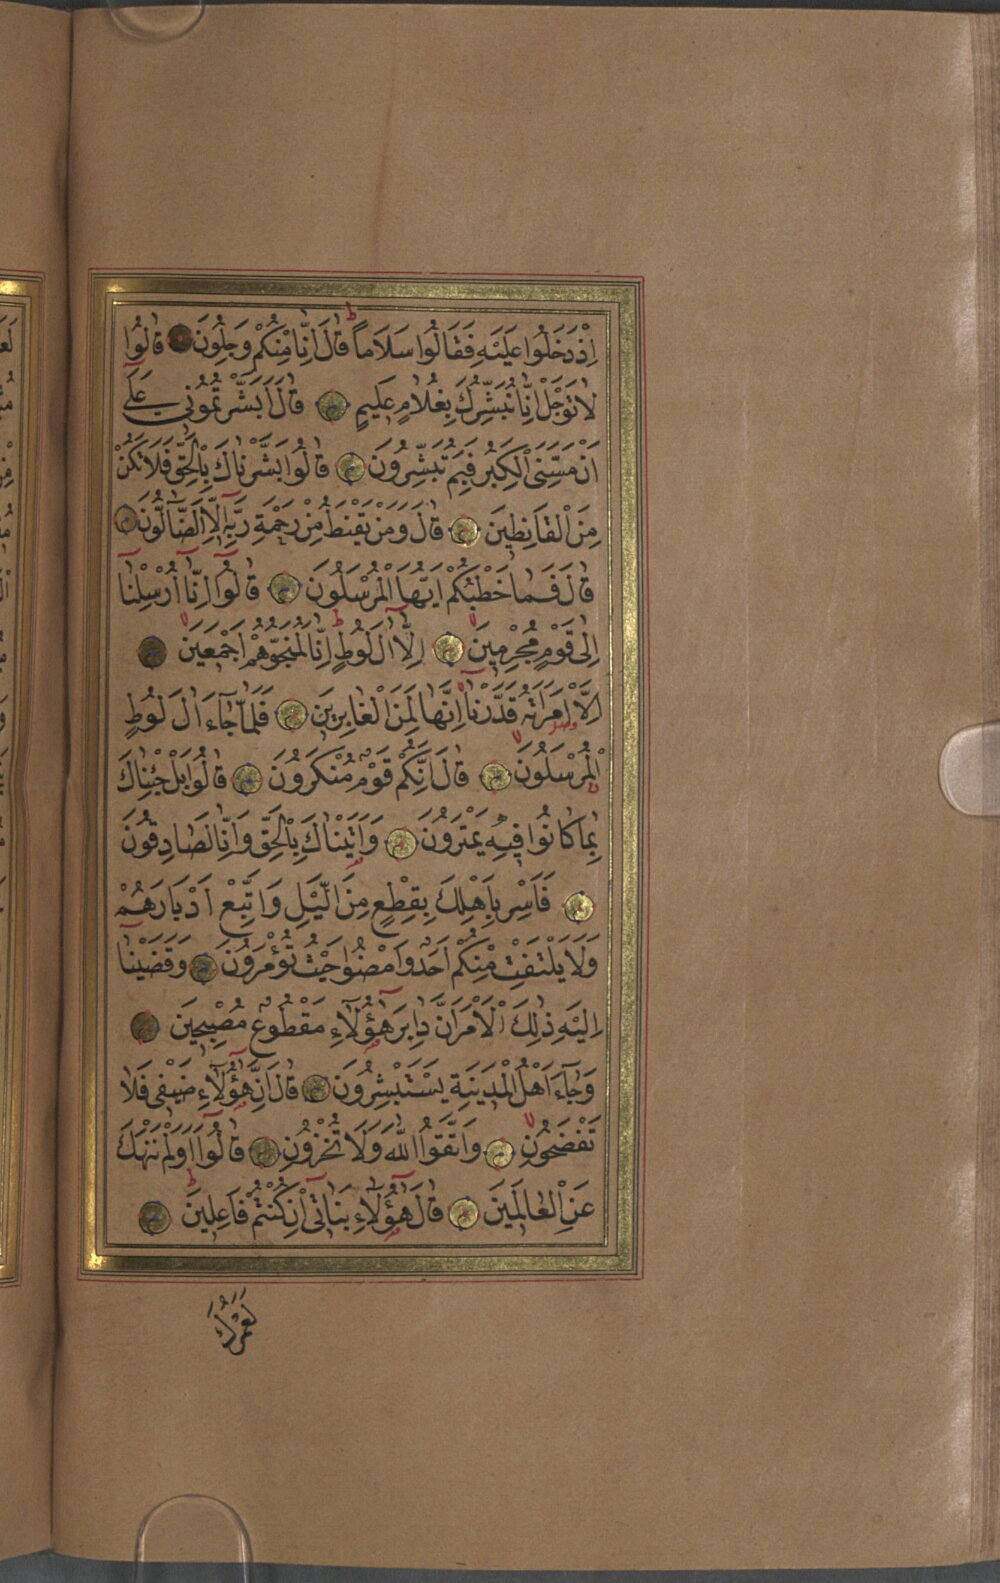 اِذْ دَخَلُوا عَلَيْهِ فَقَالُوا سَلَامًا قَالَ اِنَّا مِنْكُمْ وَجِلُونَ قَالُوا
لَا تَوْجَلْ اِنَّا نُبَشِّرُكَ بِغُلَامٍ عَلِيمٍ قَالَ اَبَشَّرْتُمُونِي عَلٰٓى
اَنْ مَسَّنِيَ الْكِبَرُ فَبِمَ تُبَشِّرُونَ قَالُوا بَشَّرْنَاكَ بِالْحَقِّ فَلَا تَكُنْ
مِنَ الْقَانِطِينَ قَالَ وَمَنْ يَقْنَطُ مِنْ رَحْمَةِ رَبِّهٖٓ اِلَّا الضَّٓالُّونَ
قَالَ فَمَا خَطْبُكُمْ اَيُّهَا الْمُرْسَلُونَ قَالُٓوا اِنَّٓا اُرْسِلْنَٓا
اِلٰى قَوْمٍ مُجْرِمِينَ اِلَّٓا اٰلَ لُوطٍ اِنَّا لَمُنَجُّوهُمْ اَجْمَعِينَ
اِلَّا امْرَاَتَهُ قَدَّرْنَٓا اِنَّهَا لَمِنَ الْغَابِرِينَ فَلَمَّا جَٓاءَ اٰلَ لُوطٍ
الْمُرْسَلُونَ قَالَ اِنَّكُمْ قَوْمٌ مُنْكَرُونَ قَالُوا بَلْ جِئْنَاكَ
بِمَا كَانُوا فِيهِ يَمْتَرُونَ وَاَتَيْنَاكَ بِالْحَقِّ وَاِنَّا لَصَادِقُونَ
فَاَسْرِ بِاَهْلِكَ بِقِطْعٍ مِنَ الَّيْلِ وَاتَّبِعْ اَدْبَارَهُمْ
وَلَا يَلْتَفِتْ مِنْكُمْ اَحَدٌ وَامْضُوا حَيْثُ تُؤْمَرُونَ وَقَضَيْنَٓا
اِلَيْهِ ذٰلِكَ الْاَمْرَ اَنَّ دَابِرَ هٰٓؤُلَٓاءِ مَقْطُوعٌ مُصْبِحِينَ
وَجَٓاءَ اَهْلُ الْمَدِينَةِ يَسْتَبْشِرُونَ قَالَ اِنَّ هٰٓؤُلَٓاءِ ضَيْفِي فَلَا
تَفْضَحُونِ وَاتَّقُوا اللّٰهَ وَلَا تُخْزُونِ قَالُٓوا اَوَلَمْ نَنْهَكَ
عَنِ الْعَالَمِينَ قَالَ هٰٓؤُلَٓاءِ بَنَاتِٓي اِنْ كُنْتُمْ فَاعِلِينَ
لَعَمْرُكَ